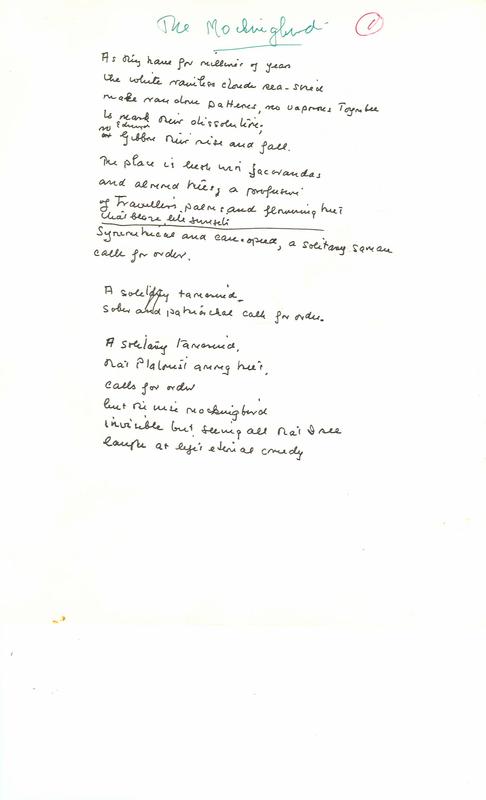 The Mockingbird
1
As they have for millions of years
the white rainless clouds sea-sired
make random patterns, no vaporous Toynbee
to mark their dissolution;
no Edward
Gibbon their rise and fall.
The place is lush with jacarandas
and almond trees, a profusion
of Travellers palms and flowering trees
that blaze like sunsets
Symmetrical and canopied, a solitary saman
calls for order.
A solitary tamarind
sober and patriarchal calls for order.
A solitary tamarind,
that Platonist among trees,
calls for order
but the wise mockingbird
invisible but seeing all that I see
laughs at life's eternal comedy